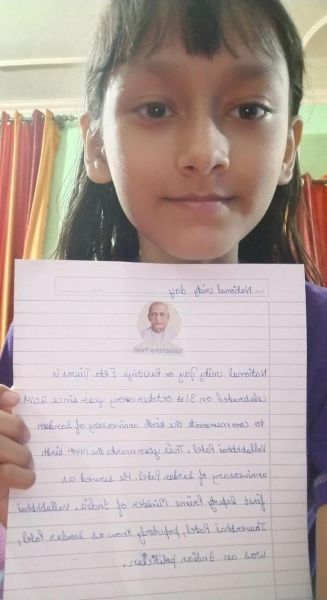 National unity day
Vallabhbhai Patel
National Unity Day or Rashtriya Ekta Diwas is
celebrated on 31st October every year since 2014
to commemorate the birth anniversary of Sardar
Vallabhbhai Patel. This year marks the 144th birth
anniversary of Sardar Patel. He served as
first Deputy Prime Minister of India. Vallabhbhai
Jhaverbhai Patel, popularly known as Sardar Patel,
was an Indian politician.